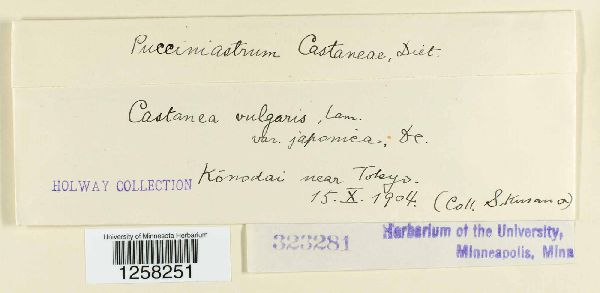 Pucciniastrum Castaneae, Diet.
Castanea vulgaris, Lam.
var. japonica., DC.
HOLWAY COLLECTION
Kōnodai near Tokyo.
15. X. 1904. (Coll. S. Kusano)
University of Minnesota Herbarium
1258251
323281
Herbarium of the University,
Minneapolis, Minn